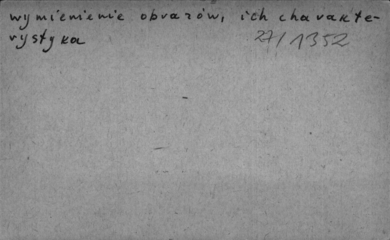 wymienienie obrazów, ich charakte-
rystyka 27/1352